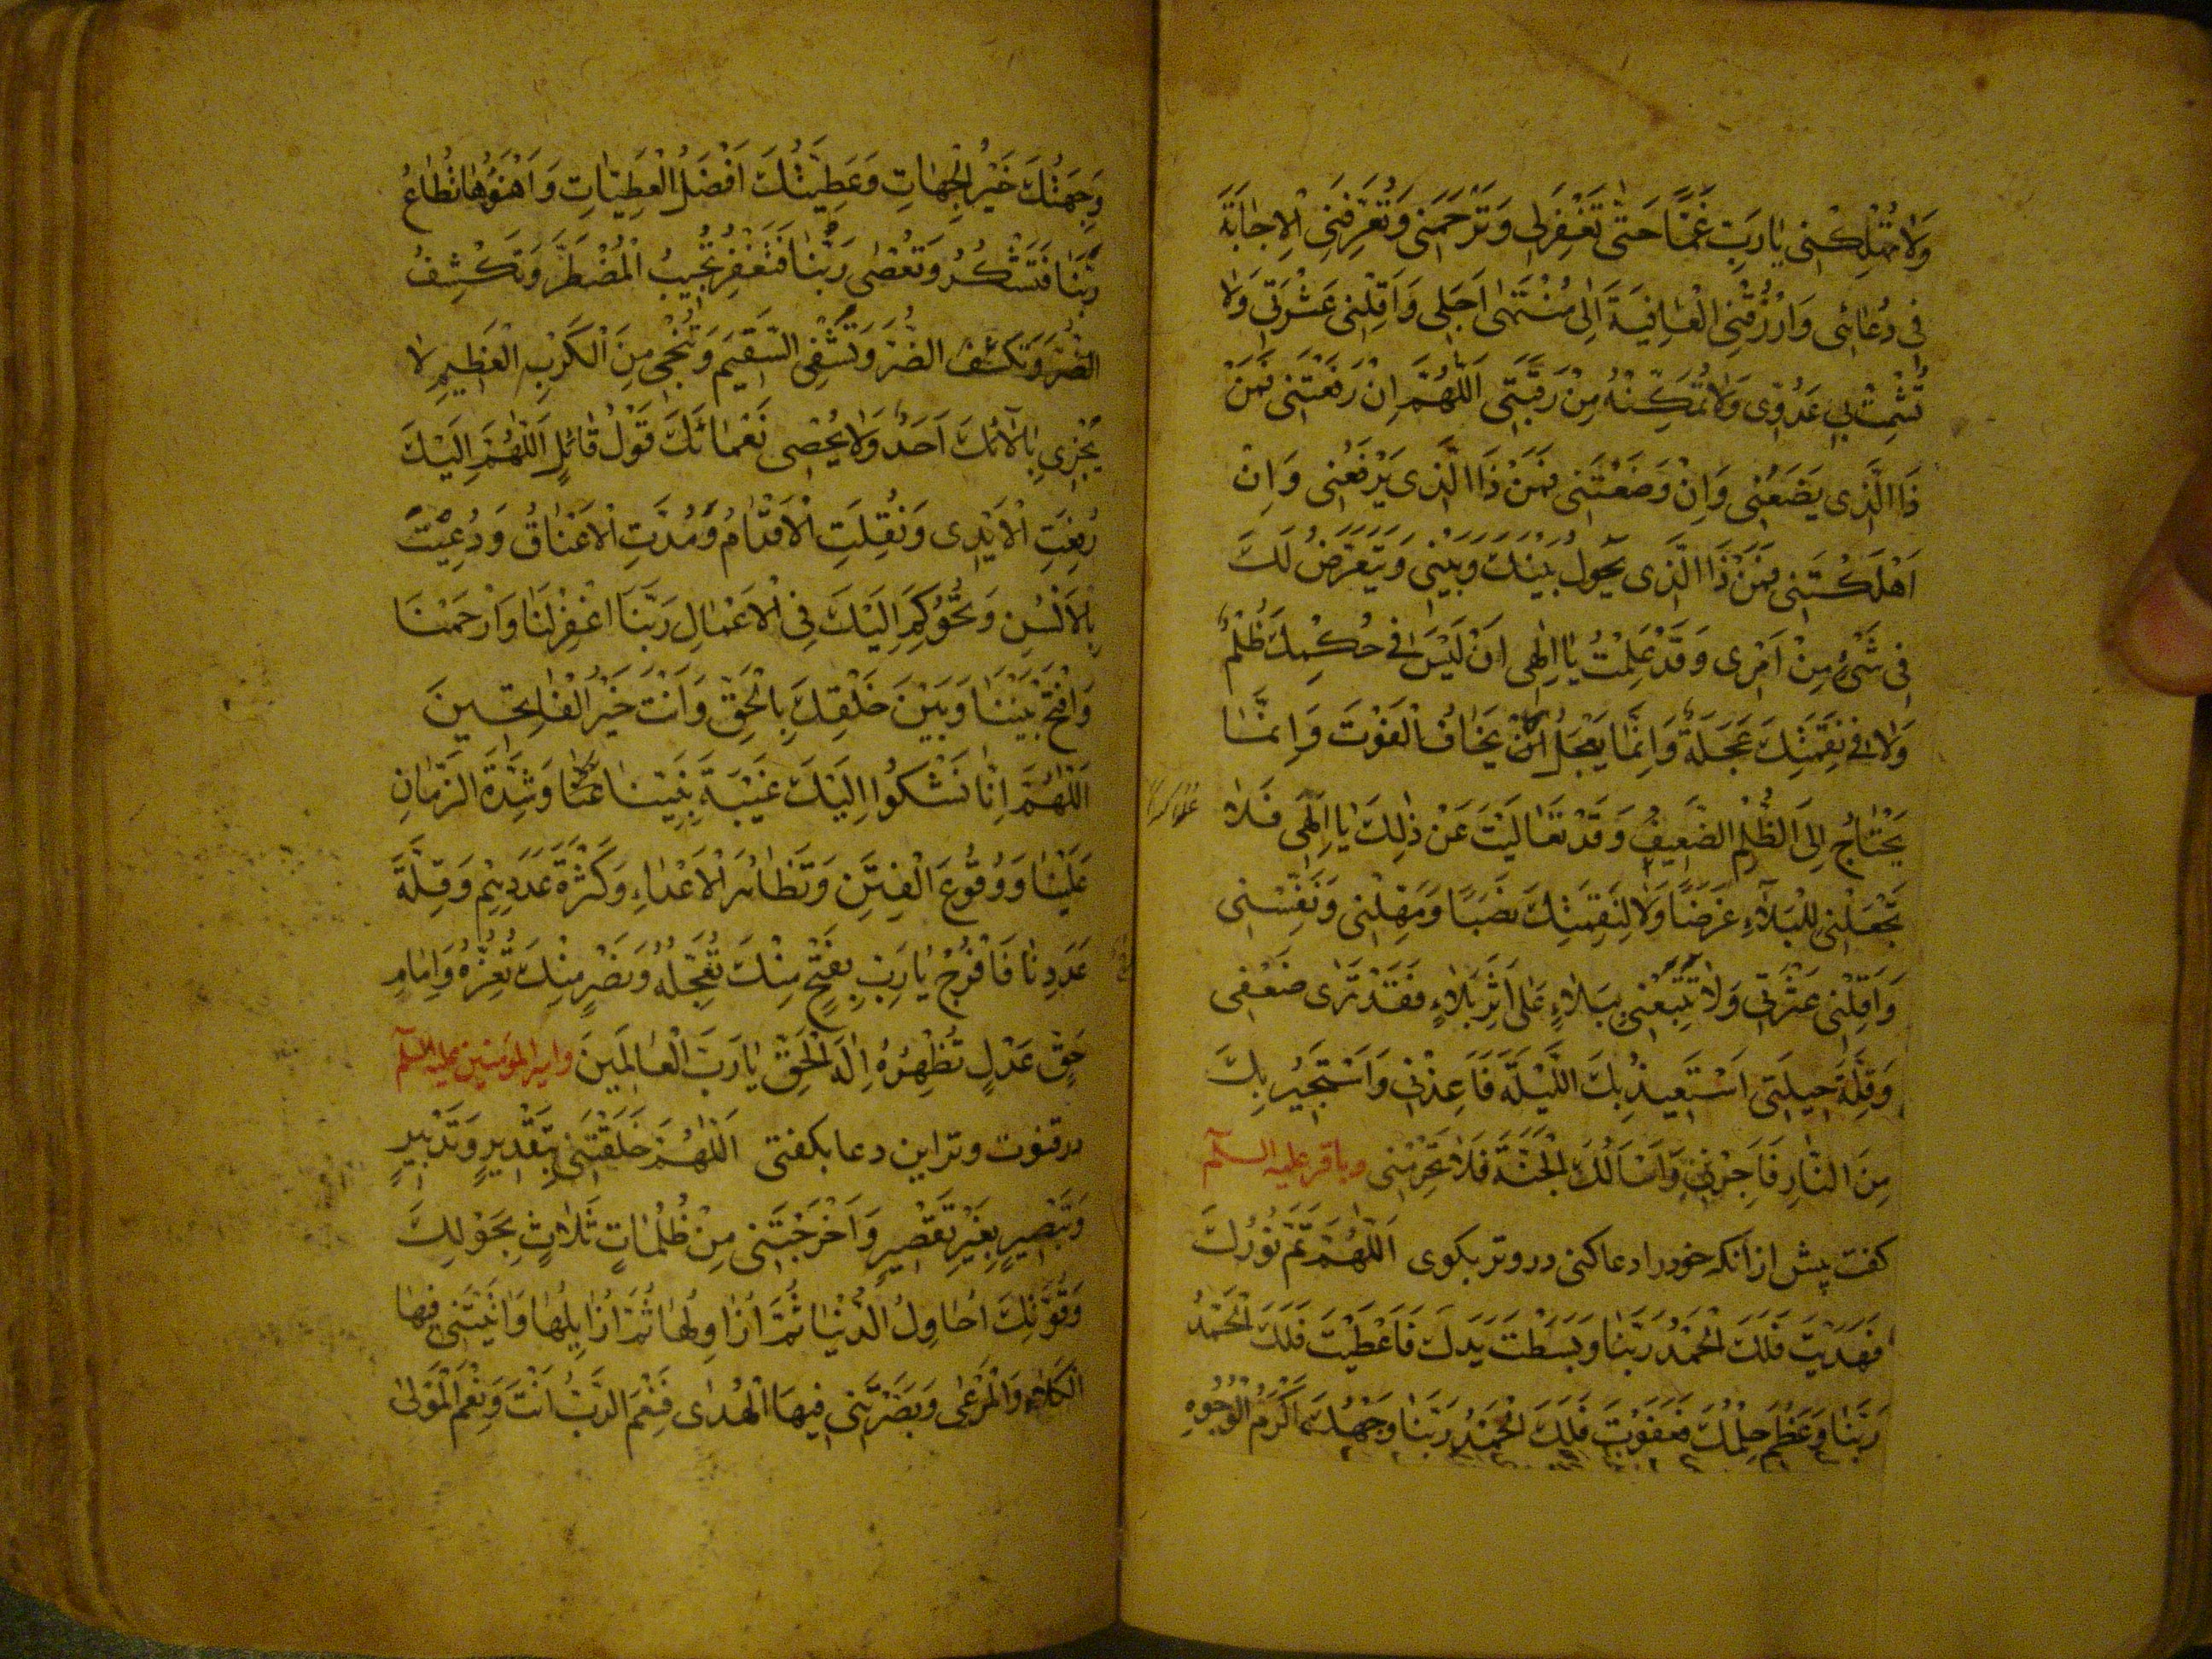 وَلَا تُهْلِكْنِی یَا رَبِّ غَمًّا حَتّٰی تَغْفِرَلِی وَتَرْحَمَنِی وَتُعَرِّفَنِی الْاِجَابَةَ
فِی دُعَائِی وَارْزُقْنِی الْعَافِیَةَ اِلٰی مُنْتَهٰی اَجَلِی وَاَقِلْنِی عَثْرَتِی وَلَا
تُشْمِتْ بِی عَدُوِّی وَلَا تُمَكِّنْهُ مِنْ رَقَبَتِی اَللّٰهُمَّ اِنْ رَفَعْتَنِی فَمَنْ
ذَا الَّذِی یَضَعُنِی وَاِنْ وَضَعْتَنِی فَمَنْ ذَا الَّذِی یَرْفَعُنِی وَاِنْ
اَهْلَكْتَنِی فَمَنْ ذَا الَّذِی یَحُولُ بَیْنَكَ وَبَیْنِی وَیَتَعَرَّضُ لَكَ
فِی شَیْءٍ مِنْ اَمْرِی وَقَدْ عَلِمْتُ یَا اِلٰهِی اَنْ لَیْسَ فِی حُكْمِكَ ظُلْمٌ
وَلَا فِی نِقْمَتِكَ عَجَلَةٌ وَاِنَّمَا یَعْجَلُ مَنْ یَخَافُ الْفَوْتَ وَاِنَّمَا
یَحْتَاجُ اِلَی الظُّلْمِ الضَّعِیفُ وَقَدْ تَعَالَیْتَ عَنْ ذٰلِكَ یَا اِلٰهِی فَلَا
تَجْعَلْنِی لِلْبَلَاءِ غَرَضًا وَلَا لِنَقِمَتِكَ نَصَبًا وَمَهِّلْنِی وَنَفِّسْنِی
وَاَقِلْنِی عَثْرَتِی وَلَا تُتْبِعْنِی بِبَلَاءٍ عَلٰی اَثَرِ بَلَاءٍ فَقَدْ تَرٰی ضَعْفِی
وَقِلَّةَ حِیلَتِی اَسْتَعِیذُ بِكَ اللَّیْلَةَ فَاَعِذْنِی وَاَسْتَجِیرُ بِكَ
مِنَ النَّارِ فَاَجِرْنِی وَاَسْاَلُكَ الْجَنَّةَ فَلَا تَحْرِمْنِی وباقر علیه السلم
كفت پیش از آنكه خود را دعا كنی در وتر بكوی اَللّٰهُمَّ تَمَّ نُورُكَ
فَهَدَیْتَ فَلَكَ الْحَمْدُ رَبَّنَا وَبَسَطْتَ یَدَكَ فَاَعْطَیْتَ فَلَكَ الْحَمْدُ
رَبَّنَا وَعَظُمَ حِلْمُكَ فَعَفَوْتَ فَلَكَ الْحَمْدُ رَبَّنَا وَجْهُكَ اَكْرَمُ الْوُجُوهِ
وَجِهَتُكَ خَیْرُ الْجِهَاتِ وَعَطِیَّتُكَ اَفْضَلُ الْعَطِیَّاتِ وَاَهْنَؤُهَا تُطَاعُ
رَبَّنَا فَتَشْكُرُ وَتُعْصٰی رَبَّنَا فَتَغْفِرُ تُجِیبُ الْمُضْطَرَّ وَتَكْشِفُ
الضُّرَّ وَتَكْشِفُ الضُّرَّ وَتَشْفِی السَّقِیمَ وَتُنْجِی مِنَ الْكَرْبِ الْعَظِیمِ لَا
یَجْزِی بِاٰلَائِكَ اَحَدٌ وَلَا یُحْصِی نَعْمَائَكَ قَوْلُ قَائِلٍ اَللّٰهُمَّ اِلَیْكَ
رُفِعَتِ الْاَیْدِی وَنُقِلَتِ الْاَقْدَامُ وَمُدَّتِ الْاَعْنَاقُ وَدُعِیتَ
بِالْاَلْسُنِ وَتُحُوكِمَ اِلَیْكَ فِی الْاَعْمَالِ رَبَّنَا اغْفِرْ لَنَا وَارْحَمْنَا
وَافْتَحْ بَیْنَنَا وَبَیْنَ خَلْقِكَ بِالْحَقِّ وَاَنْتَ خَیْرُ الْفَاتِحِینَ
اَللّٰهُمَّ اِنَّا نَشْكُوا اِلَیْكَ غَیْبَةَ نَبِیِّنَا عَنَّا وَشِدَّةَ الزَّمَانِ
عَلَیْنَا وَوُقُوعَ الْفِتَنِ وَتَظَاهُرَ الْاَعْدَاءِ وَكَثْرَةَ عَدَدِهِمْ وَقِلَّةَ
عَدَدِنَا فَافْرُجْ یَا رَبِّ بِفَتْحٍ مِنْكَ تُعَجِّلُهُ وَنَصْرٍ مِنْكَ تُعِزُّهُ وَاِمَامِ
حَقٍّ عَدْلٍ تُظْهِرُهُ اِلٰهَ الْحَقِّ یَا رَبَّ الْعَالَمِینَ وامیر المؤمنین علیه السلم
در قنوت وتر این دعا بكفتی اَللّٰهُمَّ خَلَقْتَنِی بِتَقْدِیرٍ وَتَدْبِیرٍ
وَتَبْصِیرٍ بِغَیْرِ تَقْصِیرٍ وَاَخْرَجْتَنِی مِنْ ظُلُمَاتٍ ثَلَاثٍ بِحَوْلِكَ
وَقُوَّتِكَ اُحَاوِلُ الدُّنْیَا ثُمَّ اُزَاوِلُهَا ثُمَّ اُزَایِلُهَا وَاٰتَیْتَنِی فِیهَا
الْكَلَاءَ وَالْمَرْعٰی وَبَصَّرْتَنِی فِیهَا الْهُدٰی فَنِعْمَ الرَّبُّ اَنْتَ وَنِعْمَ الْمَوْلٰی